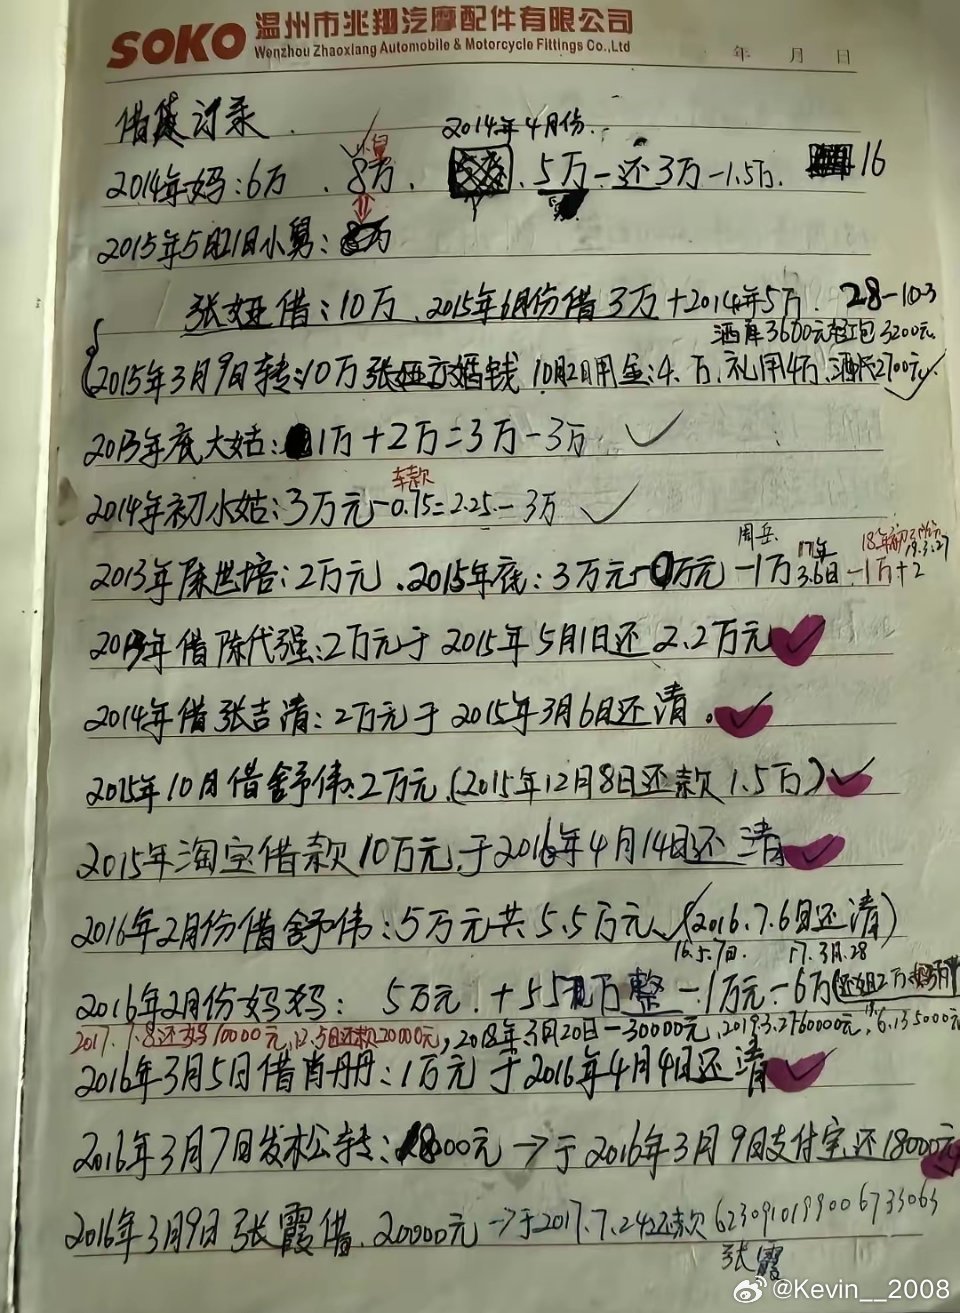 SOKO 温州市兆翔汽摩配件有限公司
Wenzhou Zhaoxiang Automobile & Motorcycle Fittings Co.,Ltd
年 月 日
借款记录
2014年4月份
2014年妈:6万、8万、5万-还3万-1.5万. 16
2015年5月21日小舅:8万
张娅借:10万、2015年6月份借3万+2014年5万. 28-10.3
酒席3600元 红包3200元
2015年3月9日转:10万张娅 婚钱 10月2日用金:4.万、礼用4万、酒 2700元 ✓
2013年底大姑:1万+2万=3万-3万 ✓
车款
2014年初小姑:3万元-0.75=2.25-3万 ✓
周岳 17年 18年初
2013年陈世培:2万元、2015年底:3万元 万元-1万 3.6日-1万+2 19.3.27
2013年借陈代强:2万元于2015年5月1日还2.2万元 ✓
2014年借张吉清:2万元于2015年3月6日还清。✓
2015年10月借舒伟:2万元.(2015年12月8日还款1.5万) ✓
2015年淘宝借款10万元.于2016年4月14日还清 ✓
2016年2月份借舒伟:5万元共5.5万元、(2016.7.6日还清)
16.5.7日. 17.3月.28
2016年2月份妈妈: 5万元 +5 万整-1万元-6万(还姐2万
2017.7.8还妈10000元、12.5日还款20000元,2018年3月20日-30000元、2019.3.2760000元, 6.135000元
2016年3月5日借肖丹丹:1万元于2016年4月4日还清 ✓
2016年3月7日发松转:18000元→于2016年3月9日支付宝还18000元
2016年3月9日张霞借、20000元→于2017.7.24还款6230910199006733063
张霞
@Kevin__2008